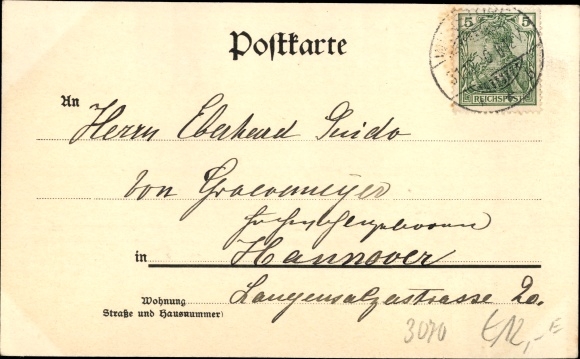 Postkarte
5 5
REICHSPOST
An Herrn Eberhard Guido
von Graevemeyer
Hochwohlgeboren
in Hannover
Wohnung Langensalzastrasse 20.
Straße und Hausnummer)
3070 €12,-